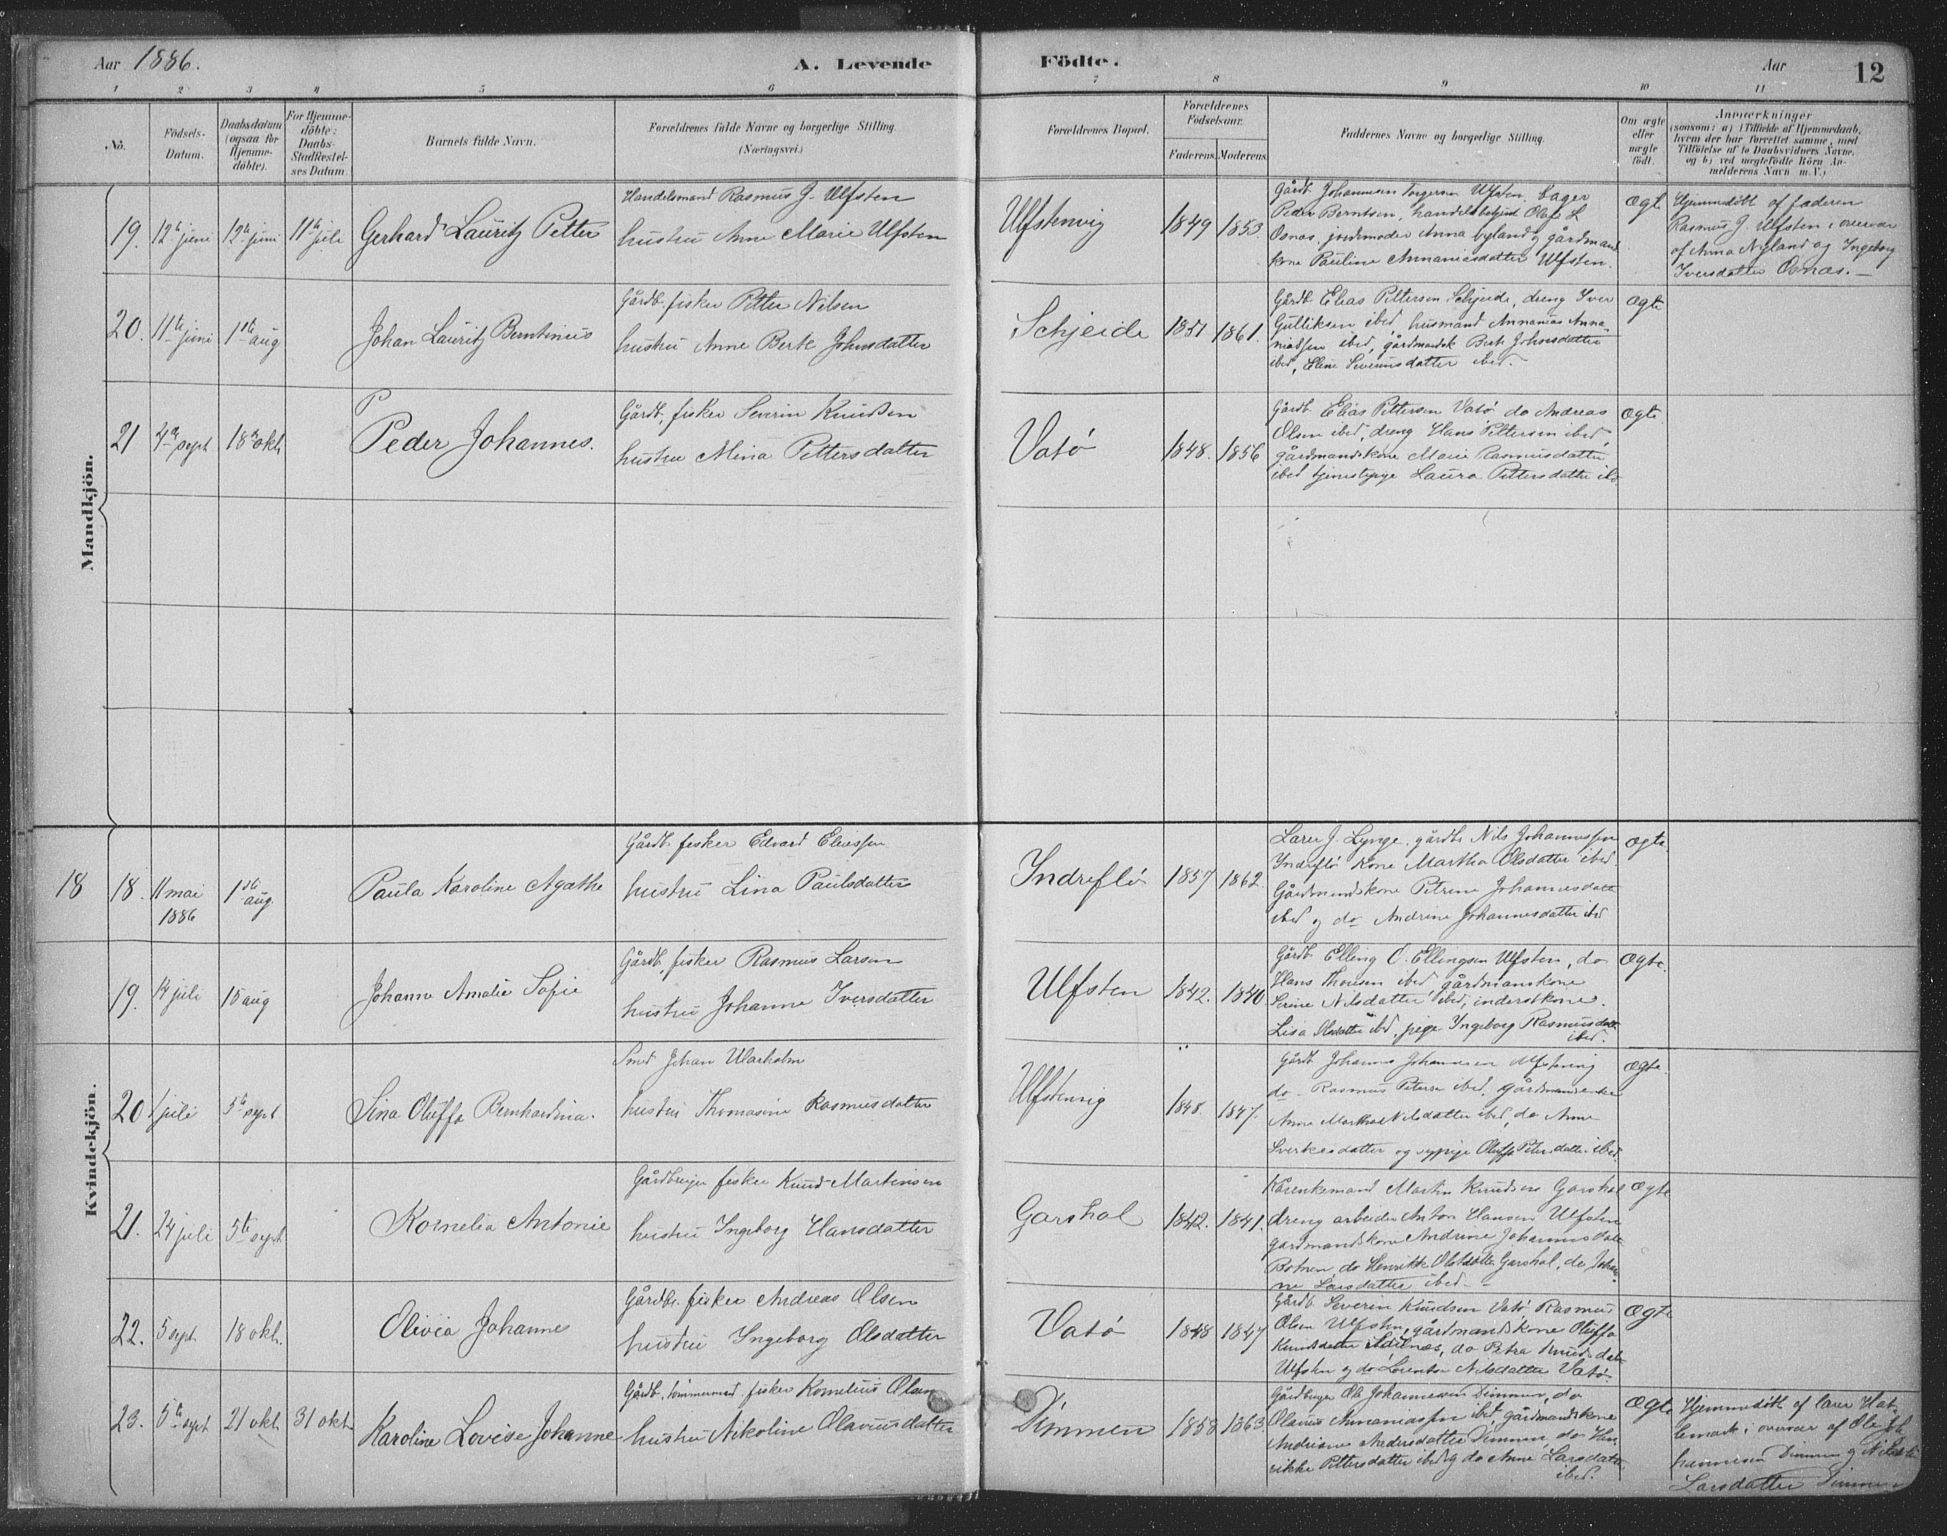 Aar 1886. A. Levende Födte. Aar 12
1 2 3 4 5 6 7 8 9 10 11
No.
Födsels-Datum.
Daabsdatum (ogsaa for Hjemmedöbte).
For Hjemmedöbte: Daabs-Stadfæstelses Datum.
Barnets fulde Navn.
Forældrenes fulde Navne og borgerlige Stilling.
(Næringsvei.)
Forældrenes Bopæl.
Forældrenes Födselsaar.
Faderens. Moderens.
Faddernes Navne og borgerlige Stilling.
Om ægte eller uægte födt.
Anmærkninger
(saasom: a) i Tilfælde af Hjemmedaab, hvem der har forrettet samme, med Tilföielse af to Daabsvidners Navne, og b) ved uægtefödte Börn Anmelderens Navn m. V.)
Mandkjön.
19. 12te juni 12te juni 11te juli Gerhard Lauritz Petter
Handelsmand Rasmus J. Ulfsten
hustru Anne Marie Ulfsten
Ulfstenvig 1849 1853
Gårdb. Johannes Torgersen Ulfsten, bager
Peder Berntsen, handelsbetjent Olaf L
Osnas, jordmoder Anna Nyland, gårdmand
kone Pauline Annaniasdatter Ulfsten.
Ægte
Hjemmedöbt af faderen
Rasmus J. Ulfsten i overvær
af Anna Nyland og Ingeborg
Iversdatter Osnas. —
20. 11te juni 1ste aug Johan Lauritz Berntinus
Gårdb. fisker Petter Nilsen
hustru Anne Berte Johnsdatter
Schjeide 1851 1861.
Gårdb Elias Pettersen Schjeide, dreng Iver
Gulliksen ibid, husmand Annanias Annaniassen ibid, gårdmandsk Berte Johnsdatter
ibid, Eline Severinsdatter ibid.
Ægte
21 sept 18de okt P
Peder Johannes.
Gårdb, fisker Severin Knudsen
hustru Mina Pettersdatter
Vatö 1848. 1856
Gårdb Elias Pettersen Vatö do Andreas
Olsen ibid, dreng Hans Pettersen ibid,
gårdmandskone Marie Rasmusdatter
ibid tjenestepige Laura Pettersdatter ibd
Ægte
Kvindekjön.
18 18. 11 mai 1886 1ste aug. Paula Karoline Agathe
Gårdb fisker Edvard Eliassen
hustru Lina Paulsdatter
Indreflö 1857 1862
Lærer J. Lynge, gårdbr Nils Johannessen
Indreflö Kone Martha Olsdatter ibid
Gårdmandskone Petrine Johannesdatt
ibid og do Andrine Johannesdatter ibd
Ægte.
19. 14 juli 15 aug Johanne Amalie Sofie
Gårdb, fisker Rasmus Larsen
hustru Johanne Iversdatter
Ulfsten 1842. 1840
Gårdb Elling O. Ellingsen Ulfsten, do
Hans Thorsen ibid, gårdmanskone
Serine Nilsdatter ibid, inderstkone
Lisa Olsdatter ibd, pige Ingeborg Rasmusdatt
ibid.
Ægte.
20 juli 5te sept. Sina Oluffa Bernhardina.
Smed Johan Ularholm
hustru Thomasine Rasmusdatter
Ulfstenvig 1848 1847.
Gårdb Johannes Johannesen Ulfstenvig
do Rasmus Peterse ibid, gårdmandsenke
Anne Marthe Nilsdatter ibid, do Anne
Sverkesdatter og sypige Oluffa Petersdatter ibid.
Ægte.
21. 24 juli 5te sept. Kornelia Antonie
Gårdbruger fisker Knud Martinsen
hustru Ingeborg Hansdatter
Garshol 1842. 1841.
Martin Knudsen Garshol
dreng arbeider Anton Hansen Ulfsten
gårdmandskone Andrine Johannesdatt
Botnen do Henrikke Olsdatter Garshol, do Johanne Larsdatter ibid. —
Ægte
22. 5 sept 18 okt. Olivia Johanne
Gårdbr. fisker Andreas Olsen
hustru Ingeborg Olsdatter
Vatö 1848 1847
Gårdb. Severin Knudsen Vatö Rasmus
Olsen Ulfsten, gårdmandskone Oluffa
Knudsdatter do Petra Knudsdatt
Ulfsten og do Lorentse Nilsdatter Vatö.
Ægte
23. 5te sept 21 okt. 31 okt. Karoline Lovise Johanne
Gårdb. tömmermand, fisker Kornelius Olsen
hustru Nikoline Olavusdatter
Dimmen 1858 1863.
Gårdbruger Ole Johannesen Dimmen, do
Olavus Annaniassen ibid, gårdmandskone
Andriane Andersdatter Dimmen, do Henrikke Pettersdatter ibid og do Anne Larsdatter
ibid.
Ægte
Hjemmedöbt af lærer Hatlemark i overvær af Ole Johannesen Dimmen og
Larsdatter Dimmen